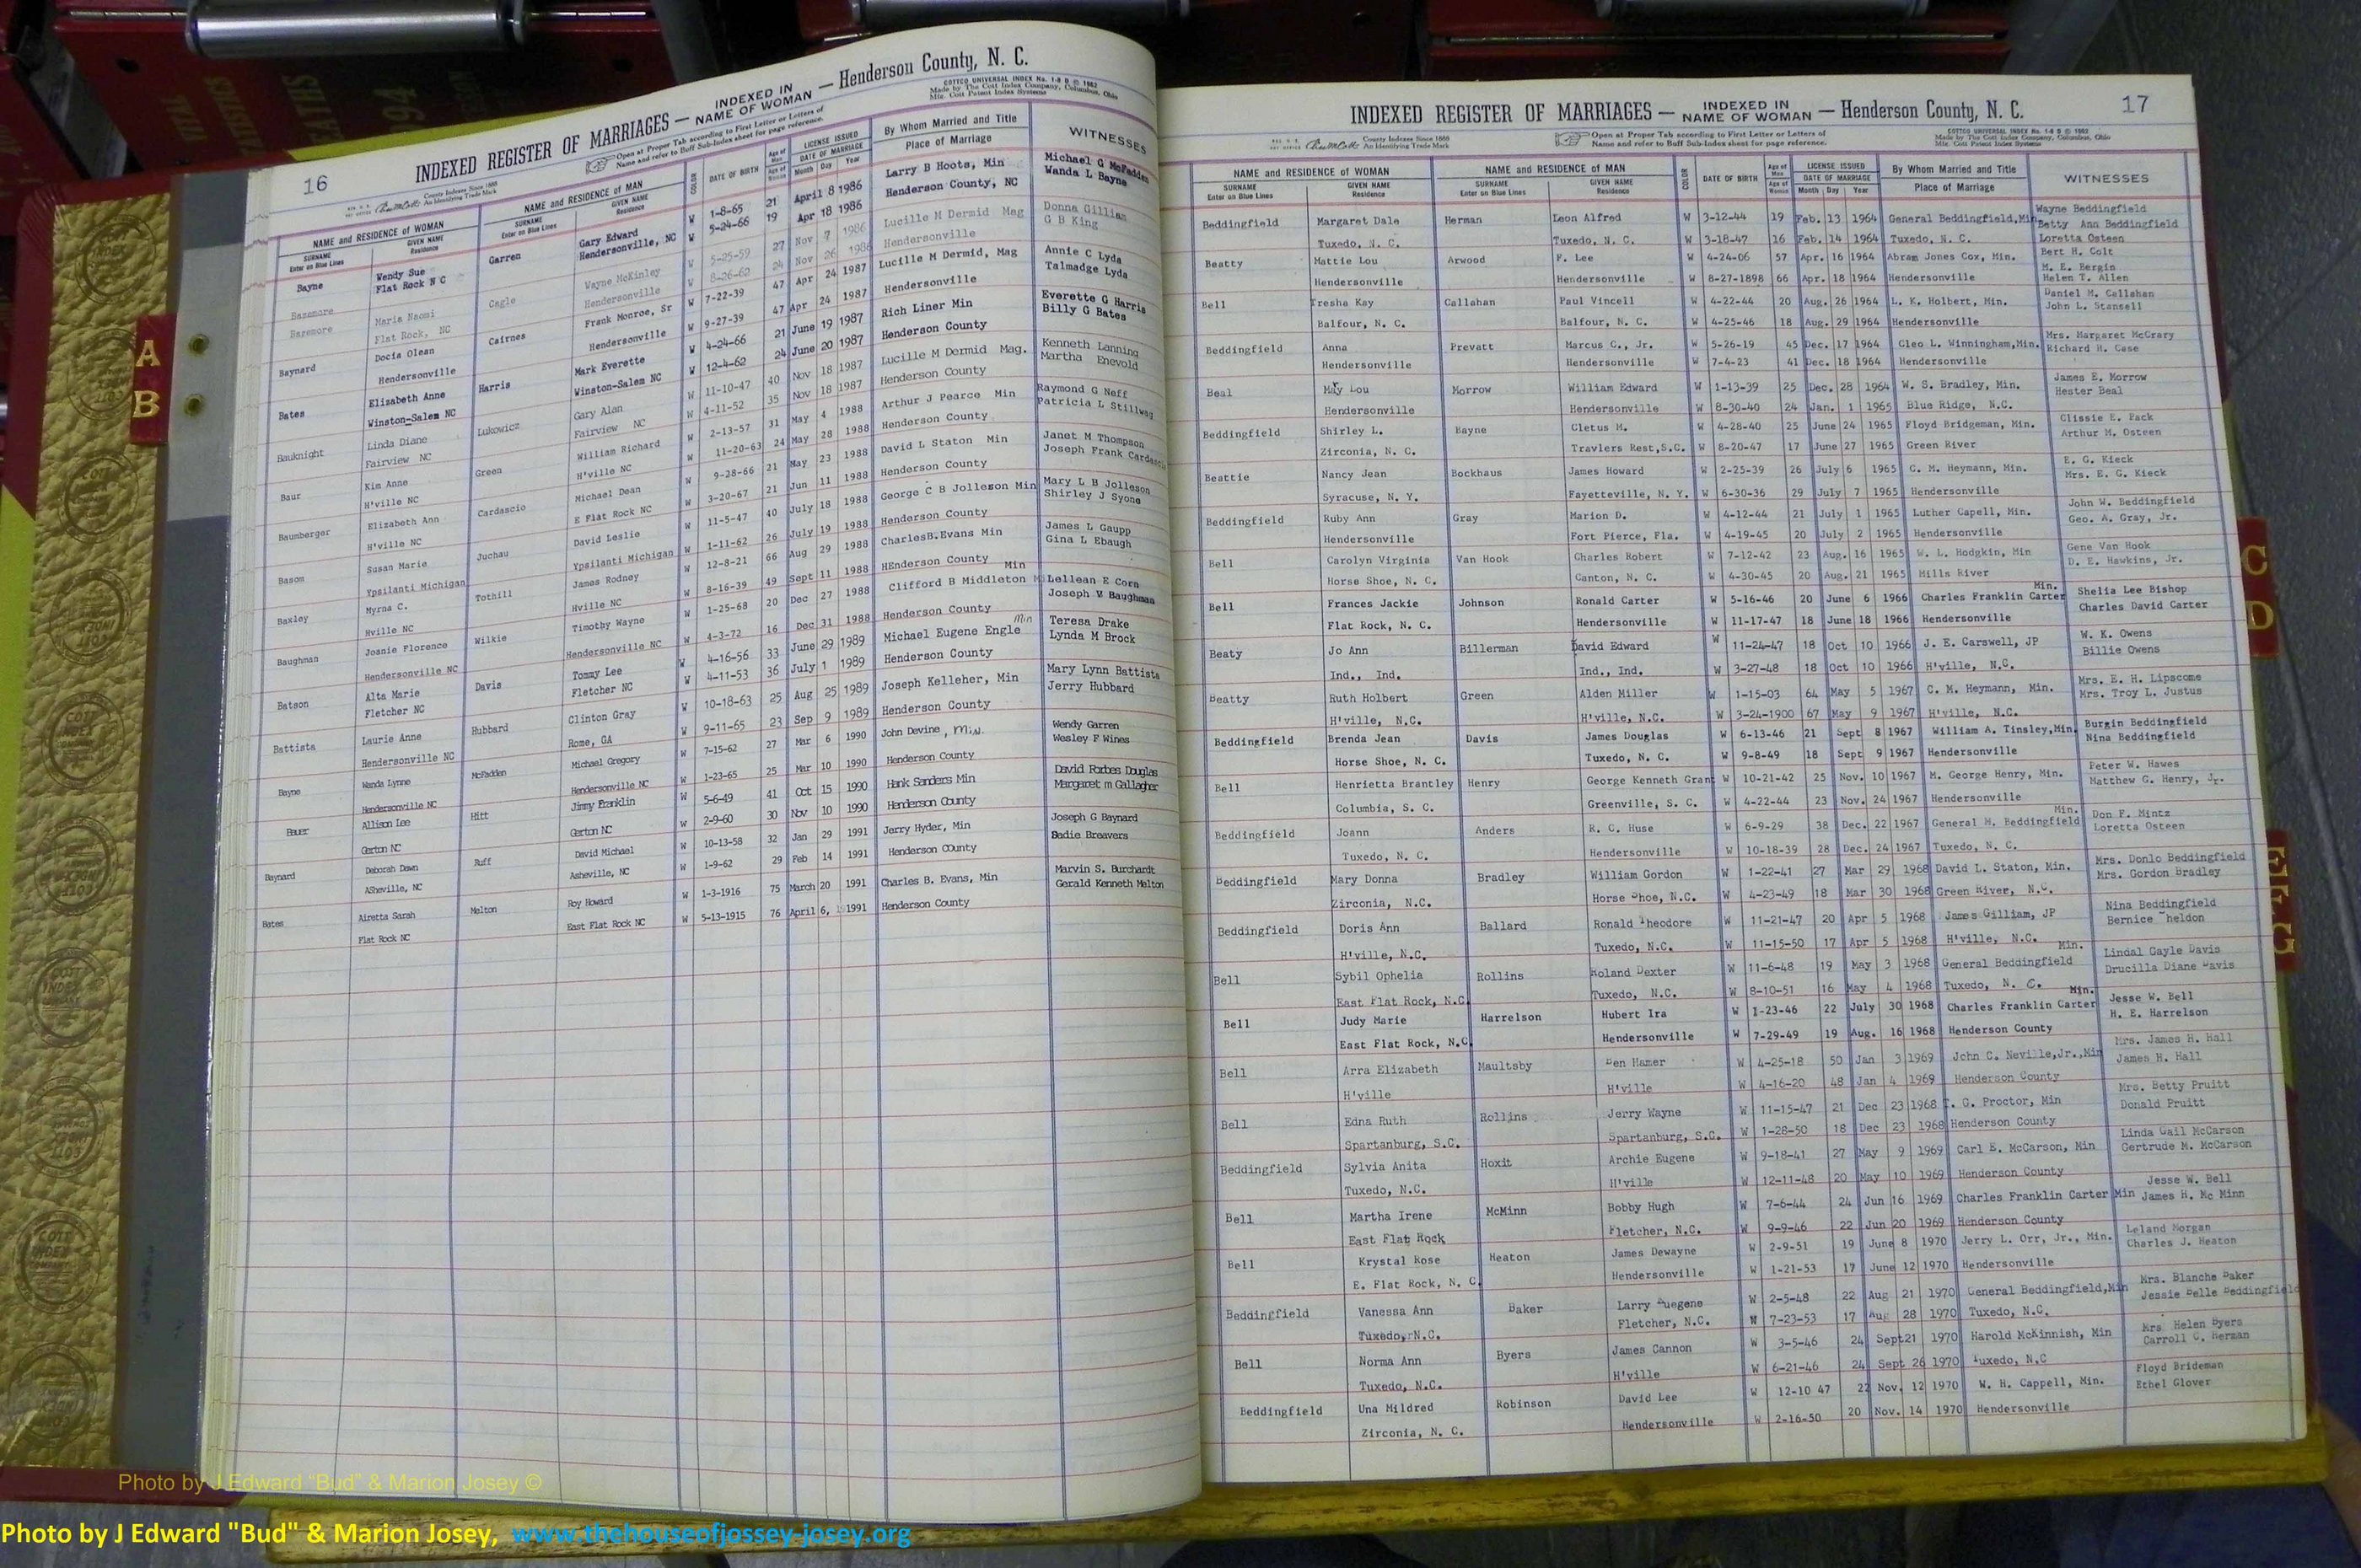 16
INDEXED REGISTER OF MARRIAGES — INDEXED IN NAME OF WOMAN — Henderson County, N. C.
County Indexes Since 1888
An Identifying Trade Mark
Open at Proper Tab according to First Letter or Letters of
Name and refer to Buff Sub-Index sheet for page reference.
COTTCO UNIVERSAL INDEX No. 1-8 B © 1962
Made by The Cott Index Company, Columbus, Ohio
Mfg. Cott Patent Index Systems
NAME and RESIDENCE OF WOMAN NAME and RESIDENCE OF MAN COLOR DATE OF BIRTH Age of Man LICENSE ISSUED By Whom Married and Title WITNESSES
SURNAME GIVEN NAME SURNAME GIVEN NAME Age of Woman DATE OF MARRIAGE Place of Marriage
Enter on Blue Lines Residence Enter on Blue Lines Residence Month Day Year
Bayne Wendy Sue Garren Gary Edward W 1-8-65 21 April 8 1986 Larry B Hoots, Min Michael G McFadden
Flat Rock N C Hendersonville, NC W 5-24-66 19 Apr 18 1986 Henderson County, NC Wanda L Bayne
Bazemore Maria Naomi Cagle Wayne McKinley W 5-25-59 27 Nov 7 1986 Lucille M Dermid Mag Donna Gilliam
Bazemore Flat Rock, NC Hendersonville W 8-26-62 24 Nov 26 1986 Hendersonville G B King
Baynard Docia Olean Cairnes Frank Monroe, Sr W 7-22-39 47 Apr 24 1987 Lucille M Dermid, Mag Annie C Lyda
Hendersonville Hendersonville W 9-27-39 47 Apr 24 1987 Hendersonville Talmadge Lyda
Bates Elizabeth Anne Harris Mark Everette W 4-24-66 21 June 19 1987 Rich Liner Min Everette G Harris
Winston-Salem NC Winston-Salem NC W 12-4-62 24 June 20 1987 Henderson County Billy G Bates
Bauknight Linda Diane Lukowicz Gary Alan W 11-10-47 40 Nov 18 1987 Lucille M Dermid Mag. Kenneth Lanning
Fairview NC Fairview NC W 4-11-52 35 Nov 18 1987 Henderson County Martha Enevold
Baur Kim Anne Green William Richard W 2-13-57 31 May 4 1988 Arthur J Pearce Min Raymond G Neff
H'ville NC H'ville NC W 11-20-63 24 May 28 1988 Henderson County Patricia L Stillwag
Baumberger Elizabeth Ann Cardascio Michael Dean W 9-28-66 21 May 23 1988 David L Staton Min Janet M Thompson
H'ville NC E Flat Rock NC W 3-20-67 21 Jun 11 1988 Henderson County Joseph Frank Cardascio
Basom Susan Marie Juchau David Leslie W 11-5-47 40 July 18 1988 George C B Jolleson Min Mary L B Jolleson
Ypsilanti Michigan Ypsilanti Michigan W 1-11-62 26 July 19 1988 Henderson County Shirley J Syone
Baxley Myrna C. Tothill James Rodney W 12-8-21 66 Aug 29 1988 CharlesB.Evans Min James L Gaupp
Hville NC Hville NC W 8-16-39 49 Sept 11 1988 HEnderson County Gina L Ebaugh
Baughman Joanie Florence Wilkie Timothy Wayne W 1-25-68 20 Dec 27 1988 Clifford B Middleton Min Lellean E Corn
Hendersonville NC Hendersonville NC W 4-3-72 16 Dec 31 1988 Henderson County Joseph V Baughman
Batson Alta Marie Davis Tommy Lee W 4-16-56 33 June 29 1989 Michael Eugene Engle Min Teresa Drake
Fletcher NC Fletcher NC W 4-11-53 36 July 1 1989 Henderson County Lynda M Brock
Battista Laurie Anne Hubbard Clinton Gray W 10-18-63 25 Aug 25 1989 Joseph Kelleher, Min Mary Lynn Battista
Hendersonville NC Rome, GA W 9-11-65 23 Sep 9 1989 Henderson County Jerry Hubbard
Bayne Wanda Lynne McFadden Michael Gregory W 7-15-62 27 Mar 6 1990 John Devine, Min. Wendy Garren
Hendersonville NC Hendersonville NC W 1-23-65 25 Mar 10 1990 Henderson County Wesley F Wines
Bauer Allison Lee Hitt Jimmy Franklin W 5-6-49 41 Oct 15 1990 Hank Sanders Min David Forbes Douglas
Gerton NC Gerton NC W 2-9-60 30 Nov 10 1990 Henderson County Margaret m Gallagher
Baynard Deborah Dawn Ruff David Michael W 10-13-58 32 Jan 29 1991 Jerry Hyder, Min Joseph G Baynard
ASheville, NC Asheville, NC W 1-9-62 29 Feb 14 1991 Henderson COunty Sadie Breavers
Bates Airetta Sarah Melton Roy Howard W 1-3-1916 75 March 20 1991 Charles B. Evans, Min Marvin S. Burchardt
Flat Rock NC East Flat Rock NC W 5-13-1915 76 April 6, 1991 Henderson County Gerald Kenneth Melton
17
INDEXED REGISTER OF MARRIAGES — INDEXED IN NAME OF WOMAN — Henderson County, N. C.
County Indexes Since 1888
An Identifying Trade Mark
Open at Proper Tab according to First Letter or Letters of
Name and refer to Buff Sub-Index sheet for page reference.
COTTCO UNIVERSAL INDEX No. 1-8 B © 1962
Made by The Cott Index Company, Columbus, Ohio
Mfg. Cott Patent Index Systems
NAME and RESIDENCE OF WOMAN NAME and RESIDENCE OF MAN COLOR DATE OF BIRTH Age of Man LICENSE ISSUED By Whom Married and Title WITNESSES
SURNAME GIVEN NAME SURNAME GIVEN NAME Age of Woman DATE OF MARRIAGE Place of Marriage
Enter on Blue Lines Residence Enter on Blue Lines Residence Month Day Year
Beddingfield Margaret Dale Herman Leon Alfred W 3-12-44 19 Feb. 13 1964 General Beddingfield,Min Wayne Beddingfield
Betty Ann Beddingfield
Tuxedo, N. C. Tuxedo, N. C. W 3-18-47 16 Feb. 14 1964 Tuxedo, N. C. Loretta Osteen
Beatty Mattie Lou Arwood F. Lee W 4-24-06 57 Apr. 16 1964 Abram Jones Cox, Min. Bert H. Colt
M. E. Bergin
Hendersonville Hendersonville W 8-27-1898 66 Apr. 18 1964 Hendersonville Helen T. Allen
Bell Tresha Kay Callahan Paul Vincell W 4-22-44 20 Aug. 26 1964 L. K. Holbert, Min. Daniel M. Callahan
Balfour, N. C. Balfour, N. C. W 4-25-46 18 Aug. 29 1964 Hendersonville John L. Stansell
Beddingfield Anna Prevatt Marcus C., Jr. W 5-26-19 45 Dec. 17 1964 Cleo L. Winningham,Min. Mrs. Margaret McCrary
Hendersonville Hendersonville W 7-4-23 41 Dec. 18 1964 Hendersonville Richard H. Case
Beal May Lou Morrow William Edward W 1-13-39 25 Dec. 28 1964 W. S. Bradley, Min. James E. Morrow
Hendersonville Hendersonville W 8-30-40 24 Jan. 1 1965 Blue Ridge, N.C. Hester Beal
Beddingfield Shirley L. Bayne Cletus M. W 4-28-40 25 June 24 1965 Floyd Bridgeman, Min. Clissie E. Pack
Zirconia, N. C. Travlers Rest,S.C. W 8-20-47 17 June 27 1965 Green River Arthur M. Osteen
Beattie Nancy Jean Bockhaus James Howard W 2-25-39 26 July 6 1965 C. M. Heymann, Min. E. G. Kieck
Syracuse, N. Y. Fayetteville, N. Y. W 6-30-36 29 July 7 1965 Hendersonville Mrs. E. G. Kieck
Beddingfield Ruby Ann Gray Marion D. W 4-12-44 21 July 1 1965 Luther Capell, Min. John W. Beddingfield
Hendersonville Fort Pierce, Fla. W 4-19-45 20 July 2 1965 Hendersonville Geo. A. Gray, Jr.
Bell Carolyn Virginia Van Hook Charles Robert W 7-12-42 23 Aug. 16 1965 W. L. Hodgkin, Min Gene Van Hook
Horse Shoe, N. C. Canton, N. C. W 4-30-45 20 Aug. 21 1965 Mills River D. E. Hawkins, Jr.
Bell Frances Jackie Johnson Ronald Carter W 5-16-46 20 June 6 1966 Charles Franklin Carter Min. Shelia Lee Bishop
Flat Rock, N. C. Hendersonville W 11-17-47 18 June 18 1966 Hendersonville Charles David Carter
Beaty Jo Ann Billerman David Edward W 11-24-47 18 Oct 10 1966 J. E. Carswell, JP W. K. Owens
Ind., Ind. Ind., Ind. W 3-27-48 18 Oct 10 1966 H'ville, N.C. Billie Owens
Beatty Ruth Holbert Green Alden Miller W 1-15-03 64 May 5 1967 C. M. Heymann, Min. Mrs. E. H. Lipscome
H'ville, N.C. H'ville, N.C. W 3-24-1900 67 May 9 1967 H'ville, N.C. Mrs. Troy L. Justus
Beddingfield Brenda Jean Davis James Douglas W 6-13-46 21 Sept 8 1967 William A. Tinsley,Min. Burgin Beddingfield
Horse Shoe, N. C. Tuxedo, N. C. W 9-8-49 18 Sept 9 1967 Hendersonville Nina Beddingfield
Bell Henrietta Brantley Henry George Kenneth Grant W 10-21-42 25 Nov. 10 1967 M. George Henry, Min. Peter W. Hawes
Columbia, S. C. Greenville, S. C. W 4-22-44 23 Nov. 24 1967 Hendersonville Matthew G. Henry, Jr.
Beddingfield Joann Anders R. C. Huse W 6-9-29 38 Dec. 22 1967 General M. Beddingfield Min. Don F. Mintz
Tuxedo, N. C. Hendersonville W 10-18-39 28 Dec. 24 1967 Tuxedo, N. C. Loretta Osteen
Beddingfield Mary Donna Bradley William Gordon W 1-22-41 27 Mar 29 1968 David L. Staton, Min. Mrs. Donlo Beddingfield
Zirconia, N.C. Horse Shoe, N.C. W 4-23-49 18 Mar 30 1968 Green River, N.C. Mrs. Gordon Bradley
Beddingfield Doris Ann Ballard Ronald Theodore W 11-21-47 20 Apr 5 1968 James Gilliam, JP Nina Beddingfield
H'ville, N.C. Tuxedo, N.C. W 11-15-50 17 Apr 5 1968 H'ville, N.C. Bernice Sheldon
Bell Sybil Ophelia Rollins Roland Dexter W 11-6-48 19 May 3 1968 General Beddingfield Min. Lindal Gayle Davis
East Flat Rock, N.C. Tuxedo, N.C. W 8-10-51 16 May 4 1968 Tuxedo, N. C. Drucilla Diane Davis
Bell Judy Marie Harrelson Hubert Ira W 1-23-46 22 July 30 1968 Charles Franklin Carter Min. Jesse W. Bell
East Flat Rock, N.C. Hendersonville W 7-29-49 19 Aug. 16 1968 Henderson County H. E. Harrelson
Bell Arra Elizabeth Maultsby Ben Hamer W 4-25-18 50 Jan 3 1969 John C. Neville,Jr.,Min Mrs. James H. Hall
H'ville H'ville W 4-16-20 48 Jan 4 1969 Henderson County James H. Hall
Bell Edna Ruth Rollins Jerry Wayne W 11-15-47 21 Dec 23 1968 T. G. Proctor, Min Mrs. Betty Pruitt
Spartanburg, S.C. Spartanburg, S.C. W 1-28-50 18 Dec 23 1968 Henderson County Donald Pruitt
Beddingfield Sylvia Anita Hoxit Archie Eugene W 9-18-41 27 May 9 1969 Carl E. McCarson, Min Linda Gail McCarson
Tuxedo, N.C. H'ville W 12-11-48 20 May 10 1969 Henderson County Gertrude M. McCarson
Bell Martha Irene McMinn Bobby Hugh W 7-6-44 24 Jun 16 1969 Charles Franklin Carter Min Jesse W. Bell
East Flat Rock Fletcher, N.C. W 9-9-46 22 Jun 20 1969 Henderson County James H. Mc Minn
Bell Krystal Rose Heaton James Dewayne W 2-9-51 19 June 8 1970 Jerry L. Orr, Jr., Min. Leland Morgan
E. Flat Rock, N. C. Hendersonville W 1-21-53 17 June 12 1970 Hendersonville Charles J. Heaton
Beddingfield Vanessa Ann Baker Larry Euegene W 2-5-48 22 Aug 21 1970 General Beddingfield,Min Mrs. Blanche Baker
Tuxedo, N.C. Fletcher, N.C. W 7-23-53 17 Aug 28 1970 Tuxedo, N.C. Jessie Belle Beddingfield
Bell Norma Ann Byers James Cannon W 3-5-46 24 Sept 21 1970 Harold McKinnish, Min Mrs Helen Byers
Tuxedo, N.C. H'ville W 6-21-46 24 Sept 26 1970 Tuxedo, N.C Carroll C. Herman
Beddingfield Una Mildred Robinson David Lee W 12-10 47 22 Nov. 12 1970 W. H. Cappell, Min. Floyd Brideman
Zirconia, N. C. Hendersonville W 2-16-50 20 Nov. 14 1970 Hendersonville Ethel Glover
A
B
C
D
E
F
G
Photo by J Edward "Bud" & Marion Josey ©
Photo by J Edward "Bud" & Marion Josey, www.thehouseofjossey-josey.org